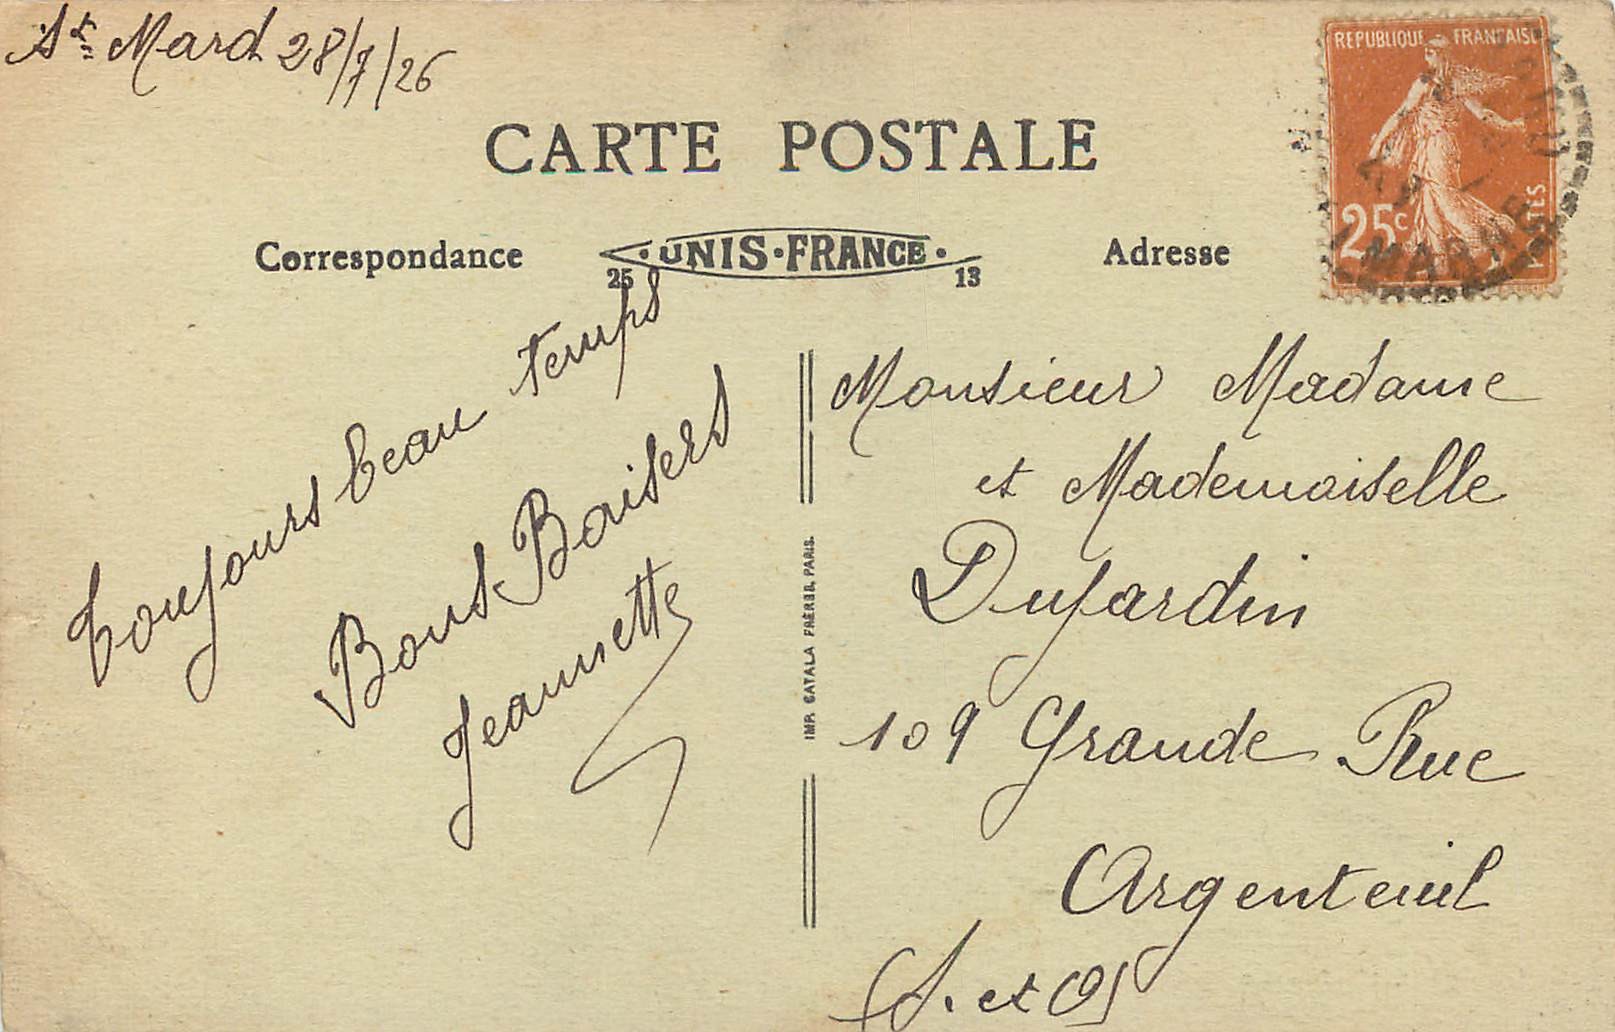 St Mard 28/7/26
CARTE POSTALE
REPUBLIQUE FRANÇAISE
25c
POSTES
MARNE
Correspondance
·UNIS·FRANCE·
25 13
Adresse
Toujours beau temps
Bons Baisers
Jeannette
IMP. CATALA FRÈRES, PARIS.
Monsieur Madame
et Mademoiselle
Dujardin
109 Grande Rue
Argenteuil
(S. et O)